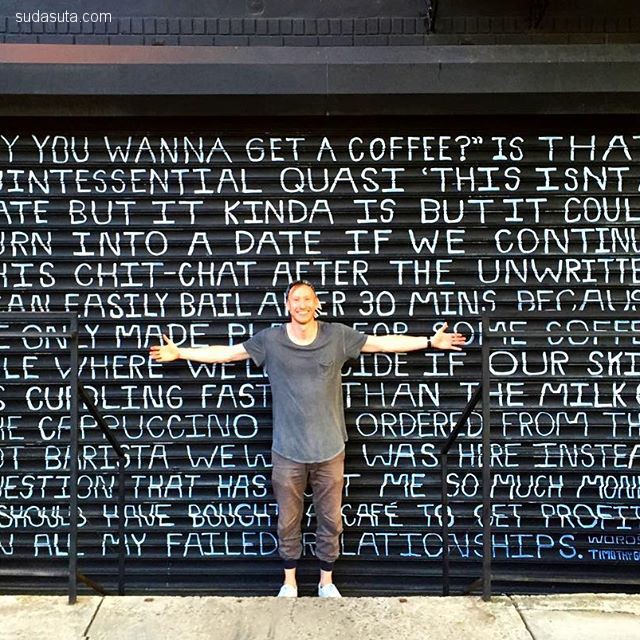 sudasuta.com
Y YOU WANNA GET A COFFEE?" IS THAT
UINTESSENTIAL QUASI 'THIS ISNT
ATE BUT IT KINDA IS BUT IT COUL
URN INTO A DATE IF WE CONTINU
HIS CHIT-CHAT AFTER THE UNWRITTE
EAN EASILY BAIL AFTER 30 MINS BECAUS
E ONLY MADE FOR SOME COFFE
LE WHERE WE'LL IDE IF OUR SKI
S CURDLING FAST THAN THE MILK
HE CAPPUCCINO ORDERED FROM TH
OT BARISTA WE W WAS HERE INSTEA
UESTION THAT HAS ME SO MUCH MONE
SHOULD HAVE BOUGHT A CAFÉ TO GET PROFIT
N ALL MY FAILED RELATIONSHIPS. WORDS
TIMOTHY